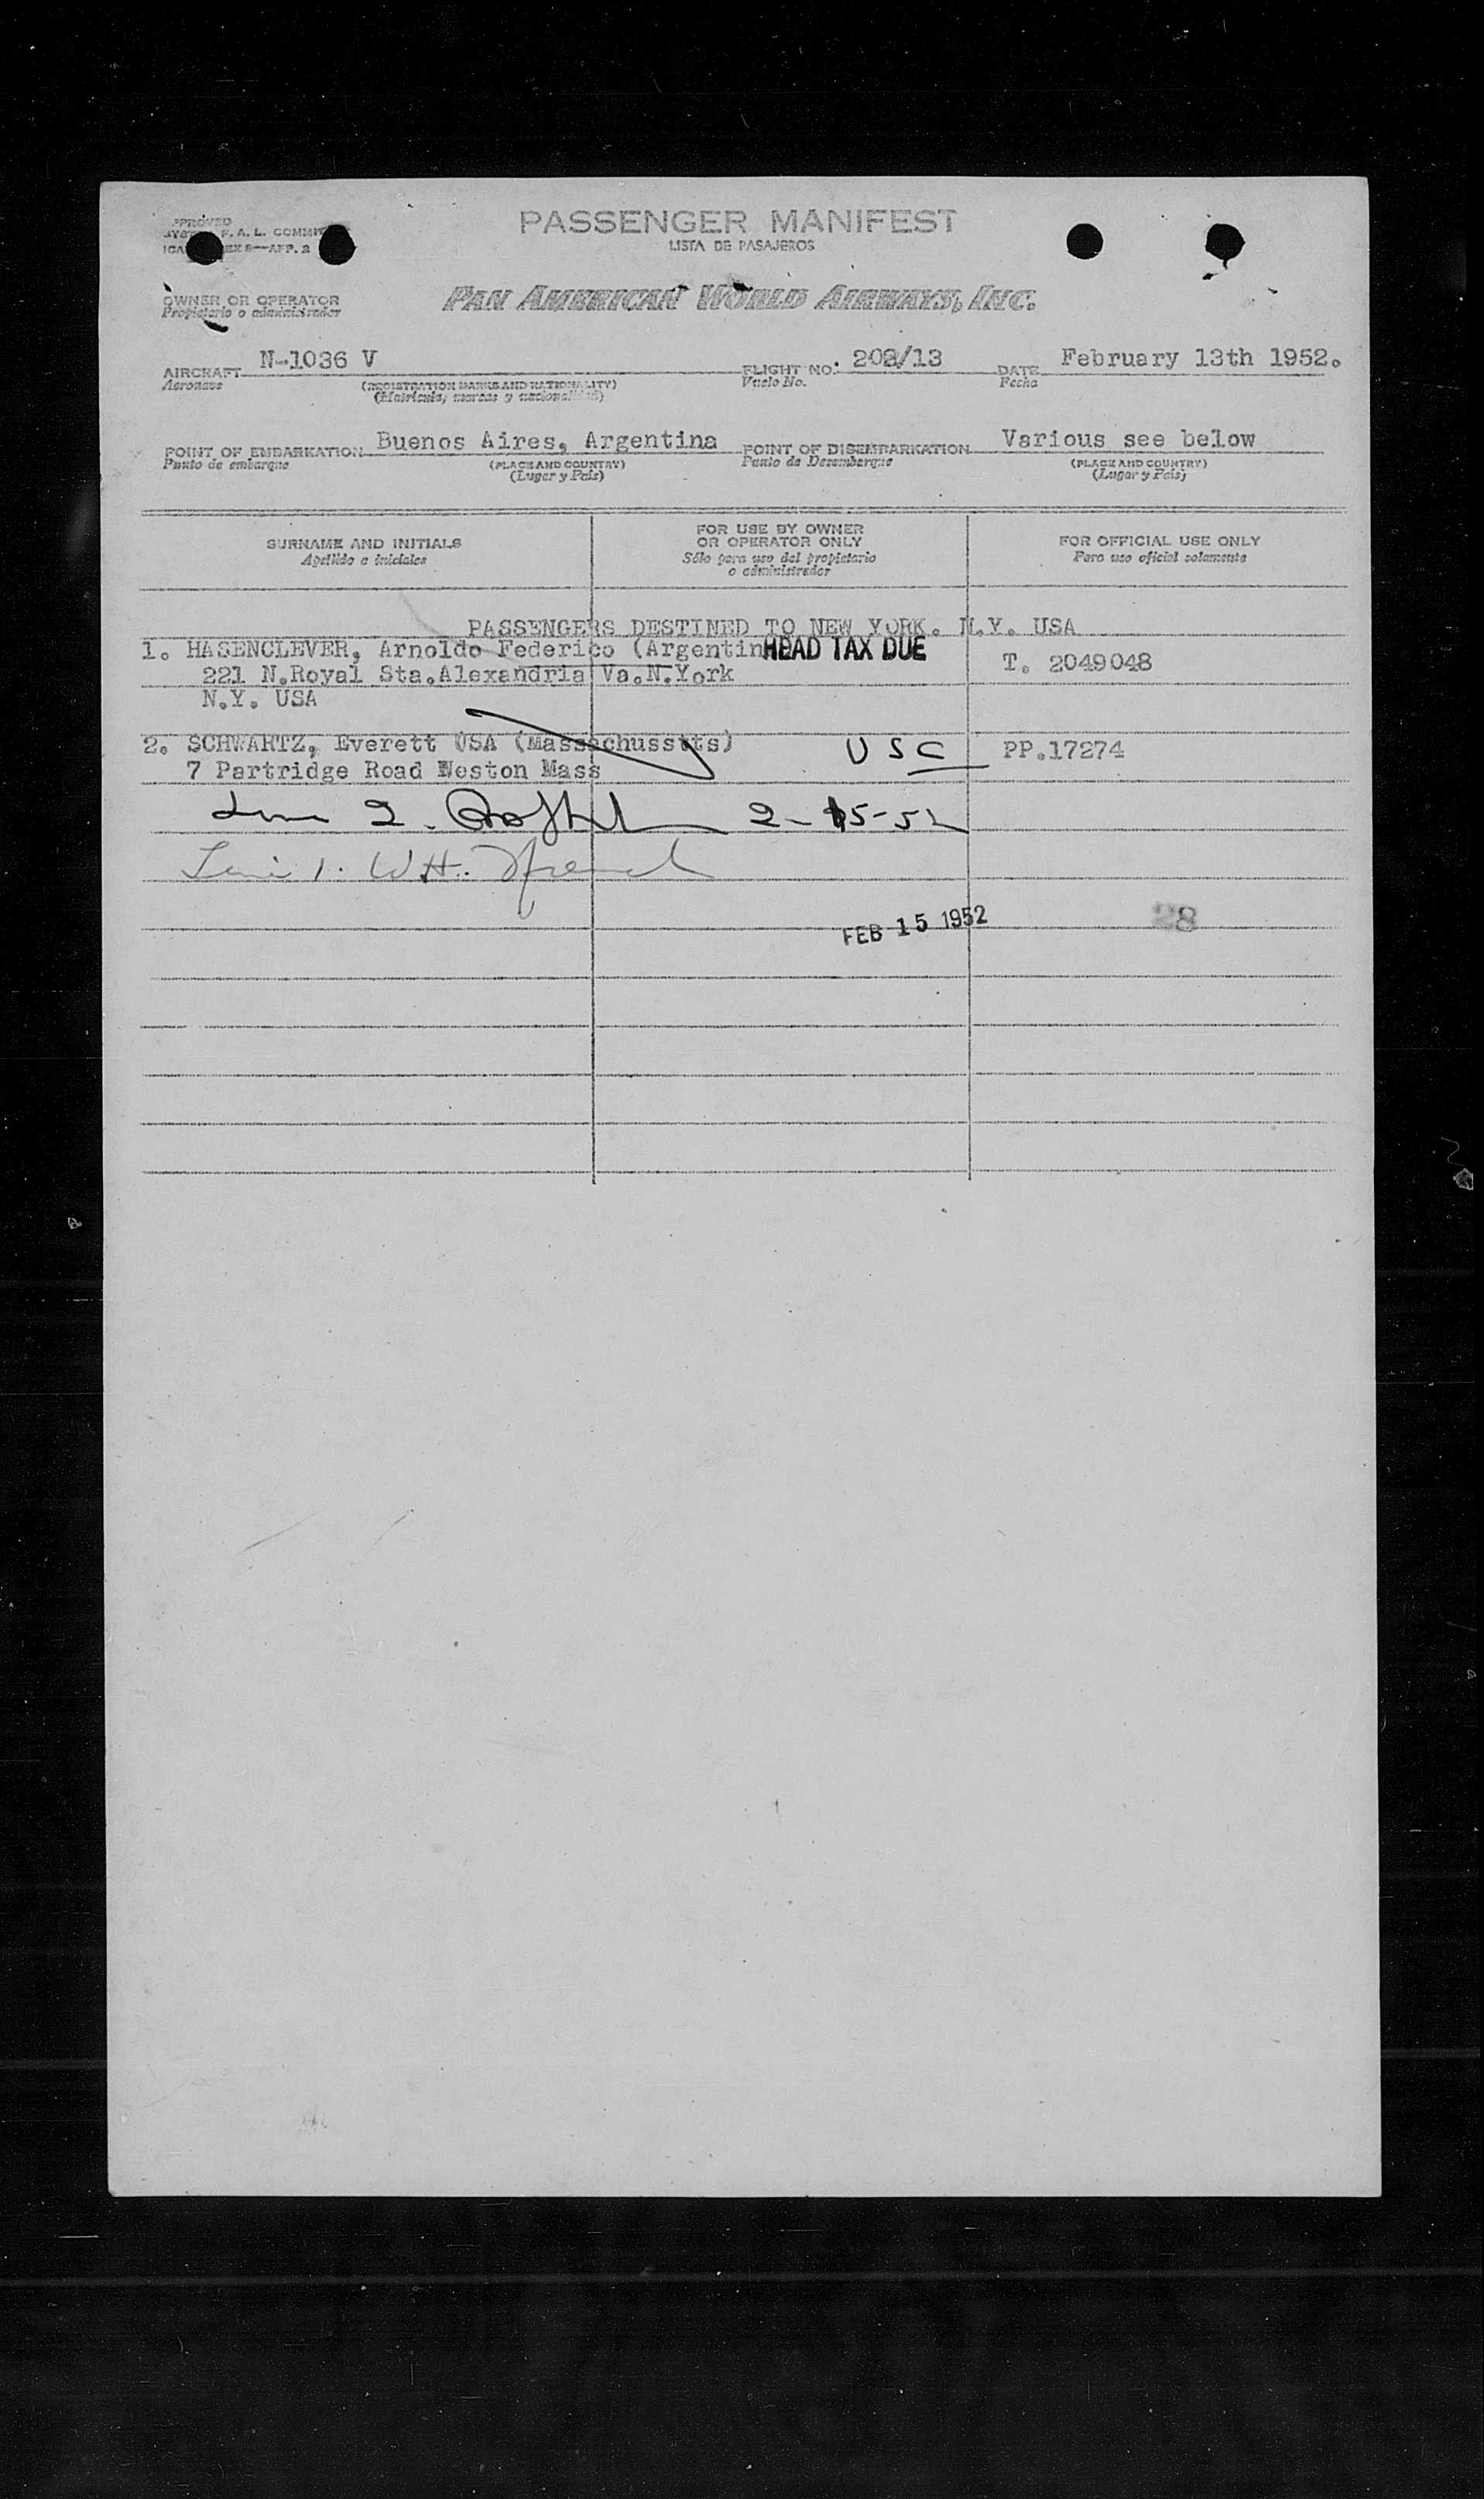 PASSENGER MANIFEST
LISTA DE PASAJEROS
PPROVED
F. A. L. COMMIT
APP. 2
OWNER OR OPERATOR
Propietario o administrador
PAN AMERICAN WORLD AIRWAYS, INC.
AIRCRAFT N-1036 V FLIGHT NO. 202/13 DATE February 13th 1952.
Aeronave (REGISTRATION MARKS AND NATIONALITY) Vuelo No. Fecha
(Matrícula, marcas y nacionalidad)
POINT OF EMBARKATION Buenos Aires, Argentina POINT OF DISEMBARKATION Various see below
Punto de embarque (PLACE AND COUNTRY) Punto de Desembarque (PLACE AND COUNTRY)
(Lugar y País) (Lugar y País)
SURNAME AND INITIALS
Apellido e iniciales
FOR USE BY OWNER
OR OPERATOR ONLY
Sólo para uso del propietario
o administrador
FOR OFFICIAL USE ONLY
Para uso oficial solamente
PASSENGERS DESTINED TO NEW YORK. N.Y. USA
1. HASENCLEVER, Arnoldo Federico (Argentin HEAD TAX DUE T. 2049048
221 N.Royal Sta.Alexandria Va.N.York
N.Y. USA
2. SCHWARTZ, Everett USA (Massachussuts) USC PP.17274
7 Partridge Road Weston Mass
2. 2-15-52
1. W.H.
FEB 15 1952 28